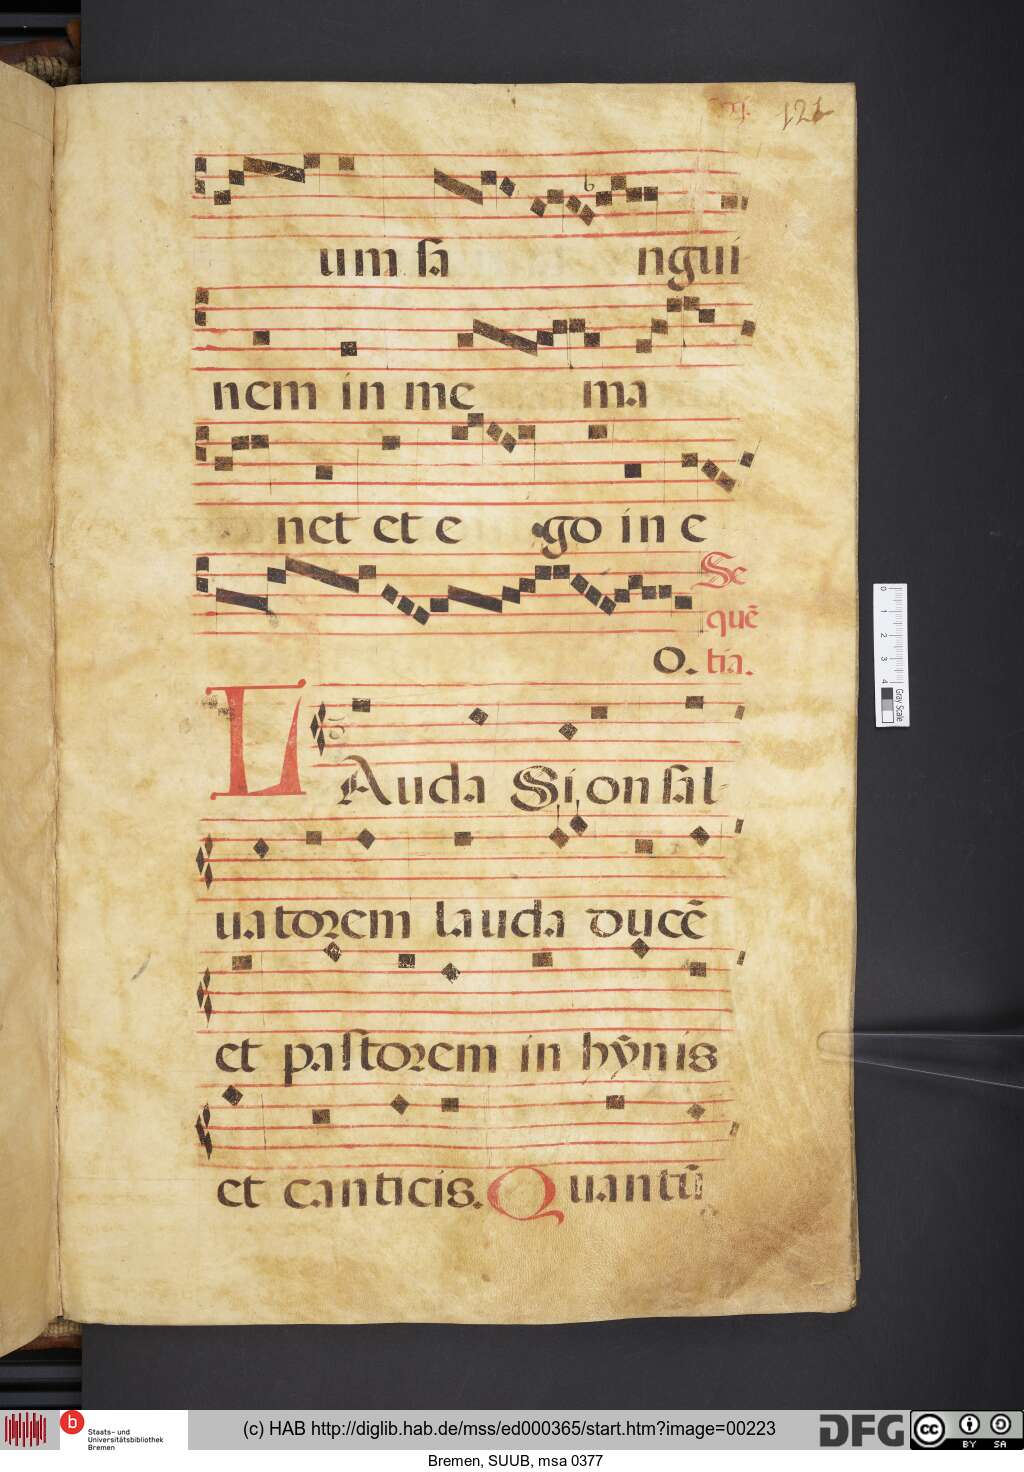 121
um sa ngui
nem in me ma
net et e go in e
Se
quẽ
o. tia.
LAuda Sion sal
uatorem lauda ducẽ
et pastorem in hỹnis
et canticis. Quantũ
0 1 2 3 4
Gray Scale
b Staats- und
Universitätsbibliothek
Bremen
(c) HAB http://diglib.hab.de/mss/ed000365/start.htm?image=00223
DFG
cc BY SA
Bremen, SUUB, msa 0377